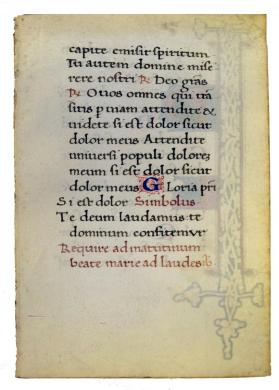 capite emisit spiritum
Tu autem domine mise
rere nostri ℟ Deo grãs
℟ O uos omnes qui trã
sitis p uiam attendite &
uidete si est dolor sicut
dolor meus Attendite
uniuersi populi dolorez
meum si est dolor sicut
dolor meus Gloria pri
Si est dolor Simbolus
Te deum laudamus te
dominum confitemur
Require ad matutinum
beate marie ad laudes